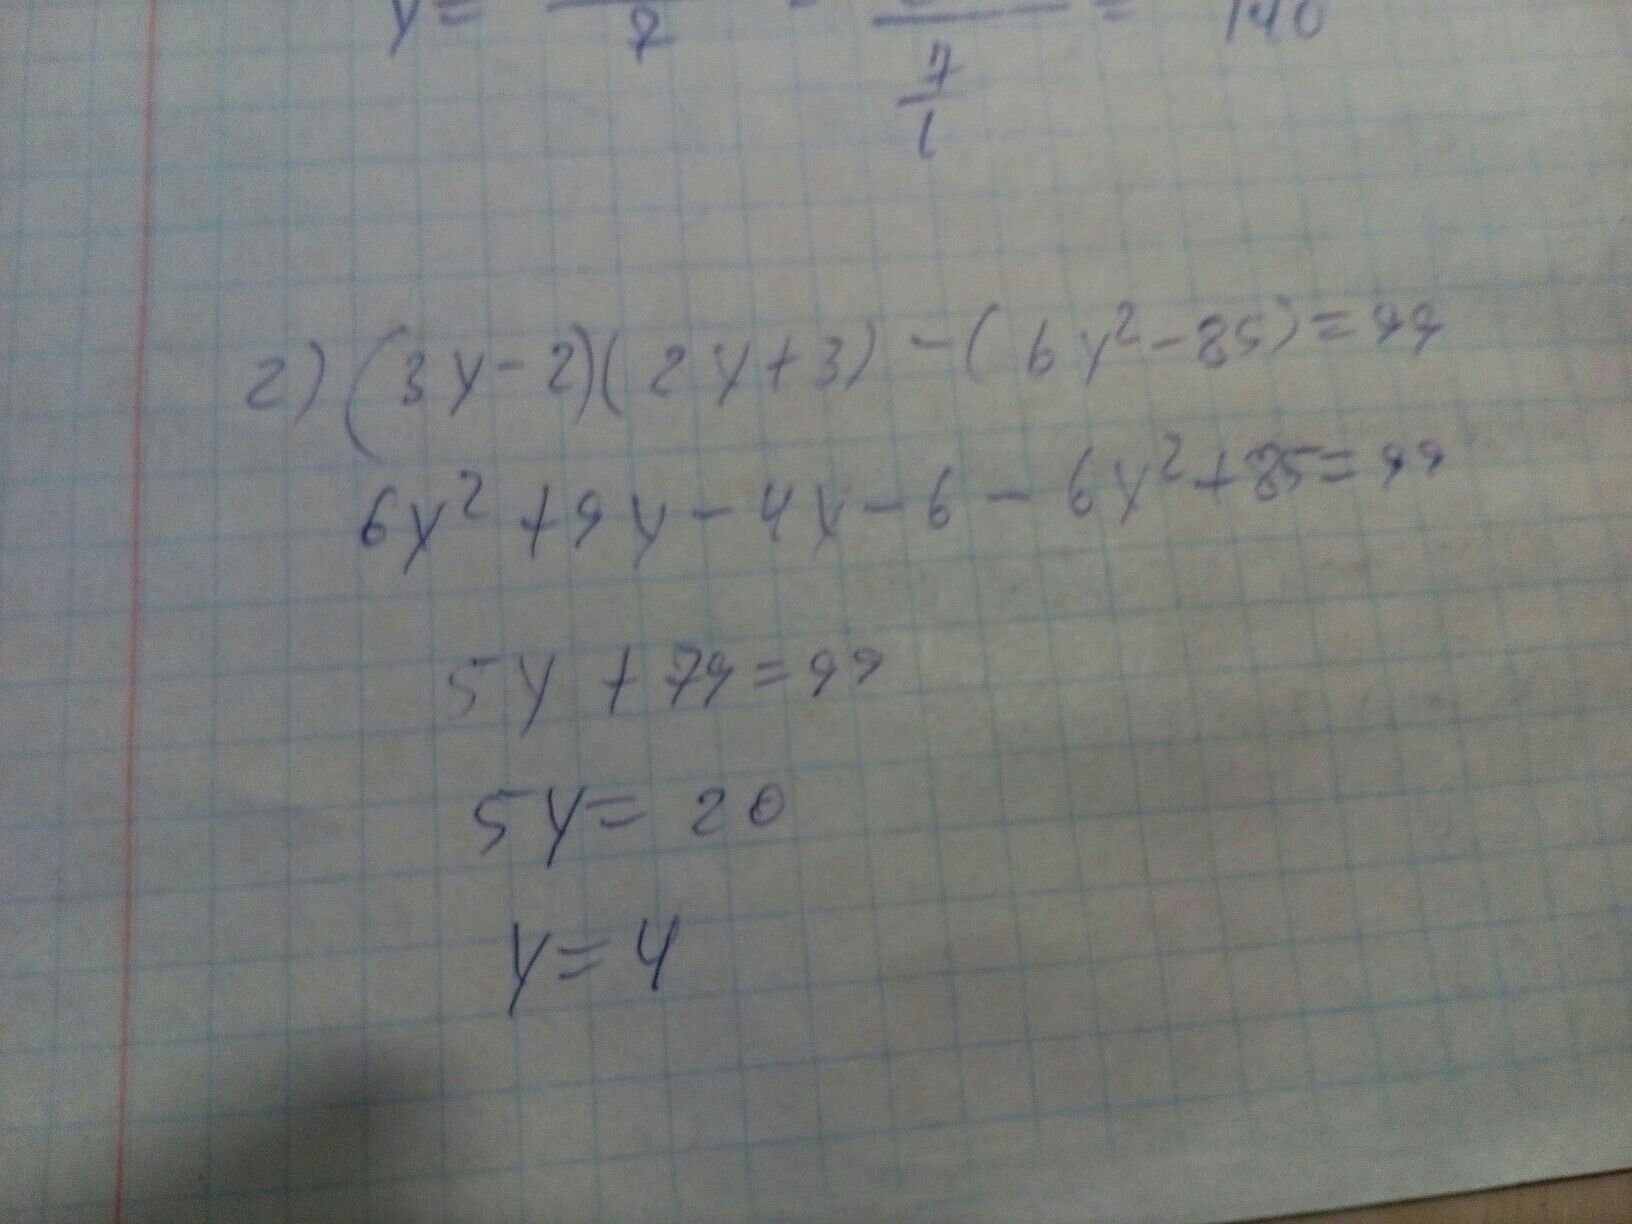 y = 7 = 140
7
1
2) (3y - 2)(2y + 3) - (6y² - 85) = 99
6y² + 9y - 4y - 6 - 6y² + 85 = 99
5y + 79 = 99
5y = 20
y = 4